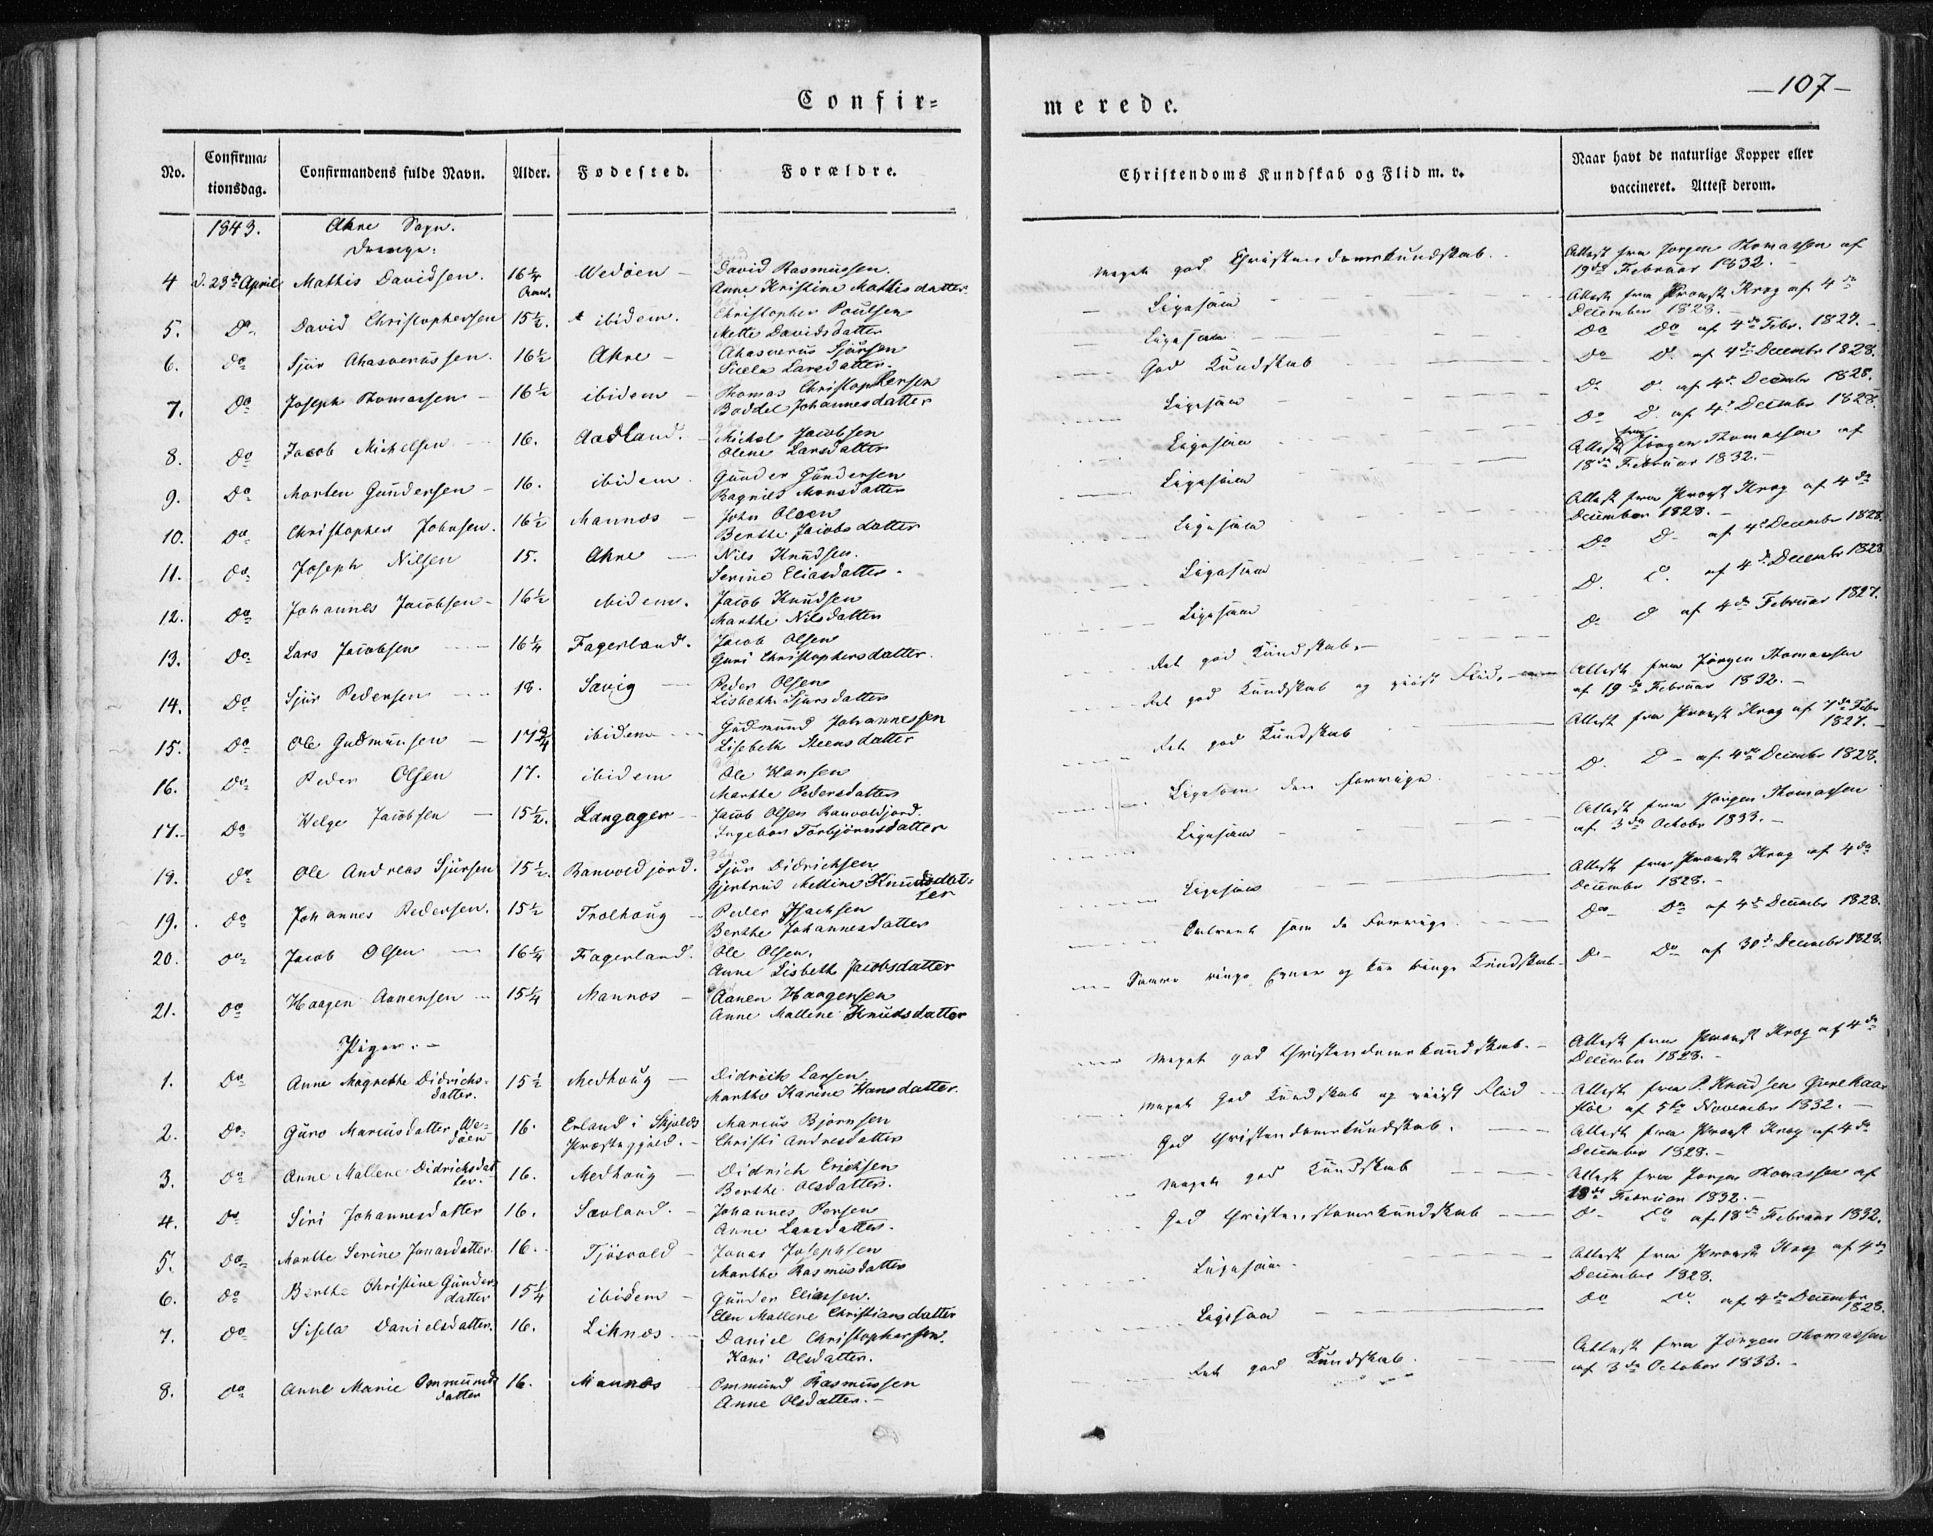 Confir=
merede.
—107—
No.
Confirma=
tionsdag.
Confirmandens fulde Navn.
Alder.
Fødested.
Forældre.
Christendoms Kundskab og Flid m. v.
Naar havt de naturlige Kopper eller
vaccineret. Attest derom.
1843.
Akre Sogn.
Drenge.
4 d. 23de April Mathis Davidsen. 16 1/4 Aar. Wedøen — David Rasmussen. Anne Kristine Mathisdatter. Meget god Christendomskundskab. Attest fra Jørgen Thomassen af 19de Februar 1832.
5. Do. David Christophersen 15 1/2. ibidem. Christopher Poulsen Mette Davidsdatter Ligesaa Attest fra Provst Krog af 4de December 1828.
6. Do Sjur Ahasverussen. 16 1/2 Akre — Ahasverus Sjursen Larsdatter. Ligesaa Do Do af 4de Febr. 1827.
7. Do Joseph Thomassen 16 1/2 ibidem Thomas Christophersen Boddel Johannesdatter God Kundskab Do D. af 4de Decembr 1828.
8. Do Jacob Michelsen 16. Aadland. Michel Jacobsen Olene Larsdatter Ligesaa D. D. af 4de Decembr 1828.
9. Do Morten Gundersen 16. ibidem. Gunder Gundersen Ragnild Monsdatter Ligesaa Do D. af 4de Decembr 1828.
10. Do Christopher Johnsen. 16 1/2 Mannes — John Olsen Berthe Jacobsdatter Ligesaa Attest fra Jørgen Thomassen af 18de Februar 1832.
11. Do Joseph Nilsen 15. Akre — Nils Knudsen. Serine Eliasdatter. Ligesaa Attest fra Provst Krog af 4de December 1828.
12. Do Johannes Jacobsen 16 1/2 ibidem. Jacob Knudsen Marthe Nilsdatter Ligesaa Do D. af 4de December 1828
13. Do Lars Jacobsen 16 1/4 Fagerland. Jacob Olsen Guri Christophersdatter. Ligesaa D. D. af 4de Decembr 1828
14. Do Sjur Pedersen 18. Sævig Peder Olsen Lisbethe Sjursdatter Ret god Kundskab. D. D af 4de Februar 1827.
15. Do Ole Gudmunsen 17 3/4 ibidem Gudmund Johannessen Lisebeth Steensdatter Ret god Kundskab og Flid, Attest fra Jørgen Thomassen af 19de Februar 1832.
16. Do Peder Olsen 17. ibidem Ole Hansen Marthe Pedersdatter Ret god Kundskab Attest fra Provst Krog af 7de Febr 1827.
17. Do Helge Jacobsen 15 1/2. Langager Jacob Olsen Ranvoldjord. Ingebor Torbjørnsdatter Ligesom den forrige. D. D. af 4de Decembr 1828.
18. Do Ole Andreas Sjursen 15 1/2. Ranvoldjord. Sjur Didrichsen Gjertrud Melline Knudsdatter Ligesaa Attest fra Jørgen Thomassen af 3de Octobr 1833.
19. Do Johannes Pedersen. 15 1/2 Trolhoug Peder Isachsen Berthe Johannesdatter Ligesaa Attest fra Provst Krog af 4de December 1828.
20. Do Jacob Olsen 16 1/4 Fagerland. Ole Olsen. Anne Lisbeth Jacobsdatter som de Forrige. Do Do af 4de Decembr 1828.
21. Do Haagen Aanensen 15 1/4 Mannes Aanen Haagensen Anne Mallene Knudsdatter ringe Evner og kun ringe Kundskab. D. Do af 30de Decembr 1828.
Piger.
1. Do Anne Magrethe Didrichsdatter. 15 1/2 Medhoug — Didrich Larsen Marthe Karine Hansdatter. Meget god Christendomskundskab. Attest fra Provst Krog af 4de December 1828.
2. Do Guro Mariusdatter Wedøen 16. Erland i Skjolds Præstegjeld. Marius Bjørnsen Christi Andresdatter Meget God Kundskab og Flid Attest fra P. Knudsen af 5te November 1832.
3. Do Anne Mallene Didrichsdatter. 16. Medhoug Didrich Erichsen Berthe Olsdatter. God Christendomskundskab. Attest fra Provst Krog af 4de December 1828.
4. Do Siri Johannesdatter 16. Sævland. Johannes Persen Anne Larsdatter. Meget god Kundskab Attest fra Jørgen Thomassen af 18de Februar 1832.
5. Do Marthe Serine Jonasdatter. 16. Tjøsvold Jonas Josephsen Marthe Rasmusdatter God Christendomskundskab D. Do af 18de Februar 1832.
6. Do Berthe Christine Gundersdatter 15 1/4 ibidem Gunder Eliassen. Elen Mallene Christiansdatter Ligesaa. Attest fra Provst Krog af 4de December 1828.
7. Do Sisela Danielsdatter. 16. Liknes Daniel Christophersen. Kari Olsdatter. Ligesaa Do Do af 4de Decembr 1828.
8. Do Anne Marie Ommundsdatter 16. Mannes Ommund Rasmussen Anne Olsdatter. Ret god Kundskab. Attest fra Jørgen Thomassen af 3de October 1833.